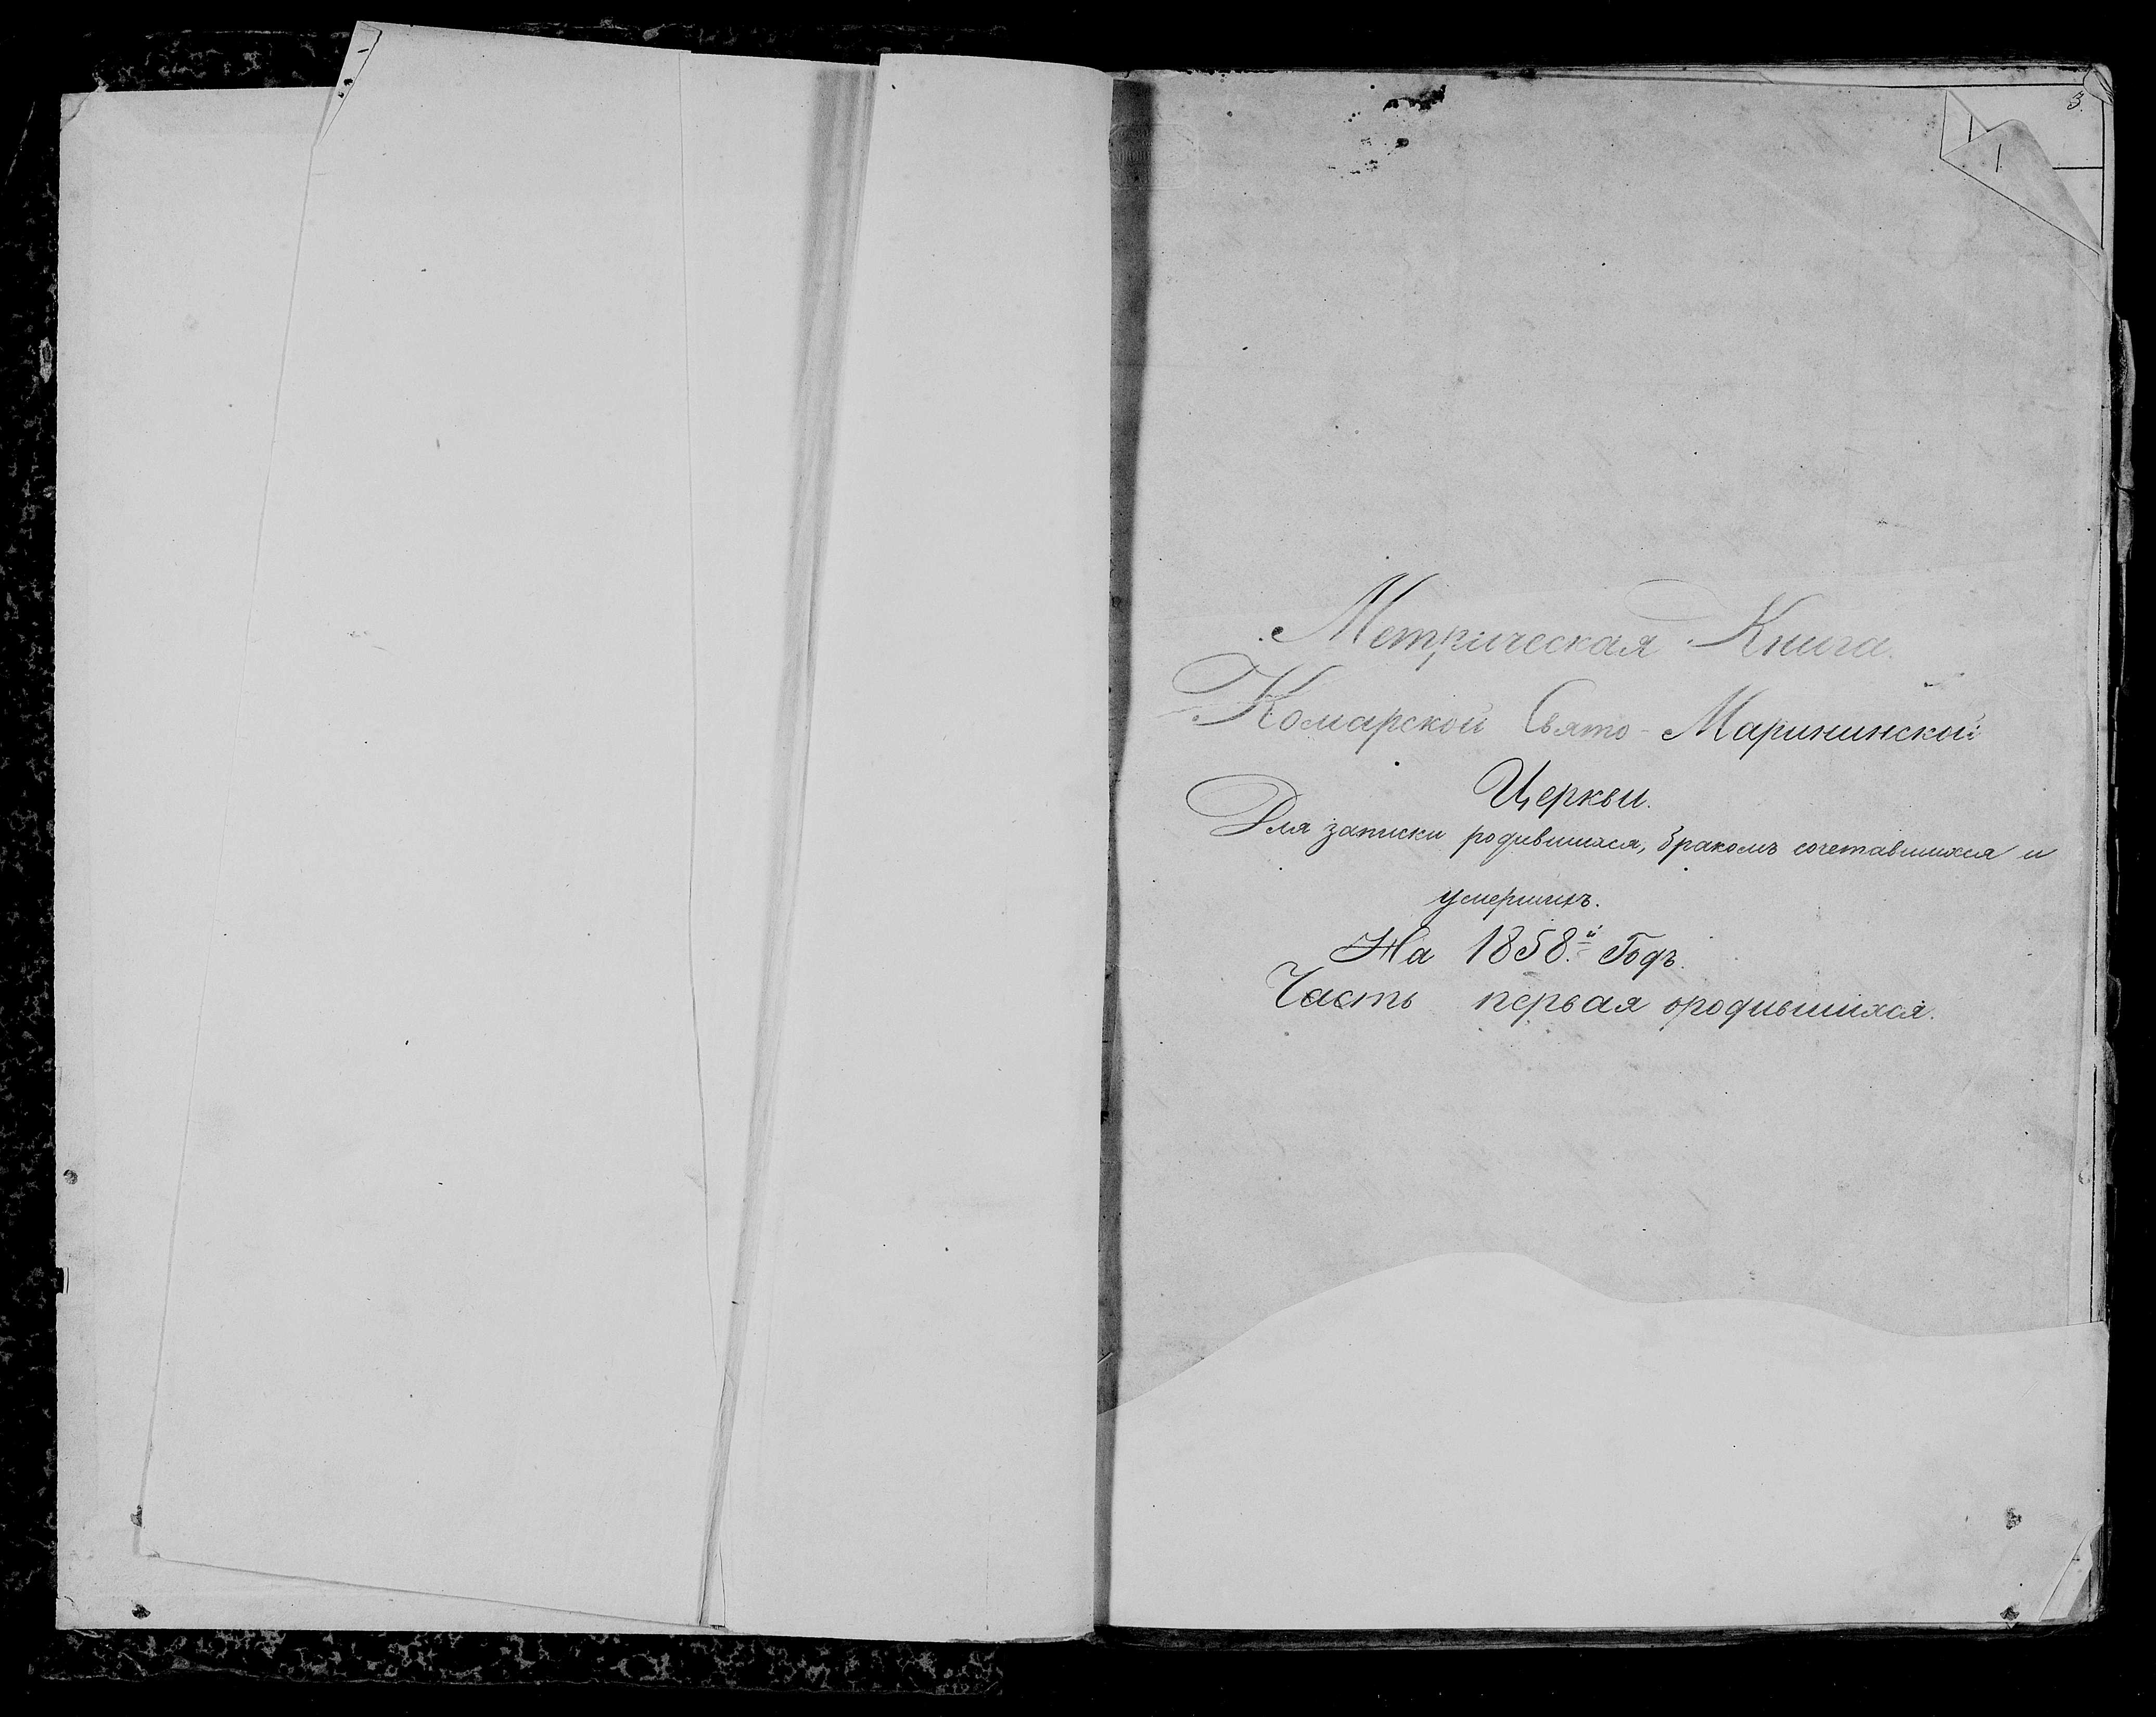 3.
1
Метрическая Книга.
Комарской Свято-Марининской
Церкви.
Для записки родившихся, бракомъ сочетавшихся и
умершихъ.
На 1858.й Годъ.
Часть первая ородившихся.